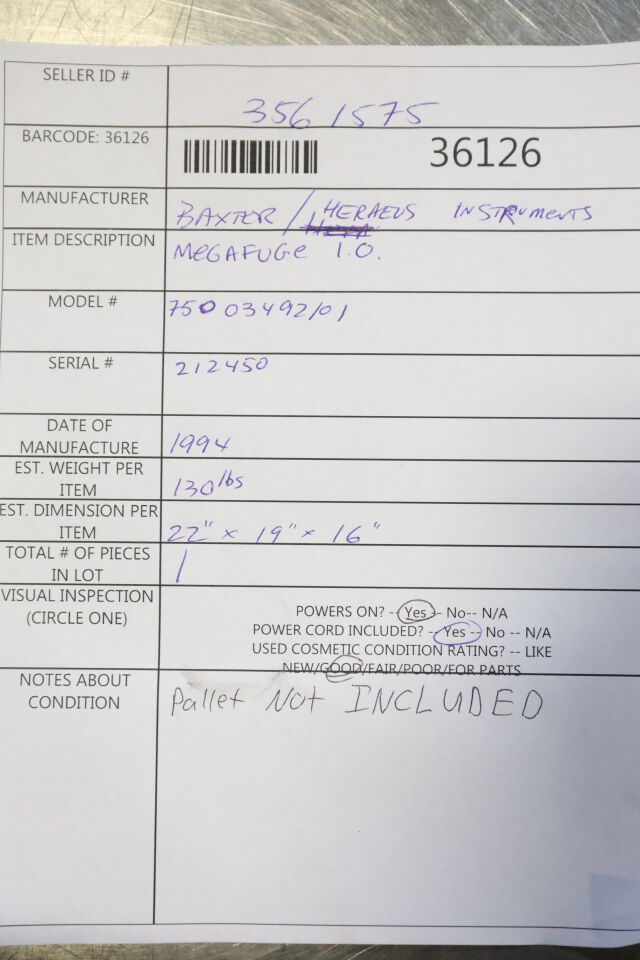 SELLER ID #
356 1575
BARCODE: 36126
36126
MANUFACTURER
BAXTER / HERAEUS INSTRUMENTS
ITEM DESCRIPTION
MEGAFUGE 1.0.
MODEL #
750 03492/01
SERIAL #
212450
DATE OF
MANUFACTURE
1994
EST. WEIGHT PER
ITEM
130 lbs
EST. DIMENSION PER
ITEM
22" x 19" x 16"
TOTAL # OF PIECES
IN LOT
1
VISUAL INSPECTION
(CIRCLE ONE)
POWERS ON? -- Yes -- No-- N/A
POWER CORD INCLUDED? -- Yes -- No -- N/A
USED COSMETIC CONDITION RATING? -- LIKE
NEW/GOOD/FAIR/POOR/FOR PARTS
NOTES ABOUT
CONDITION
Pallet Not INCLUDED